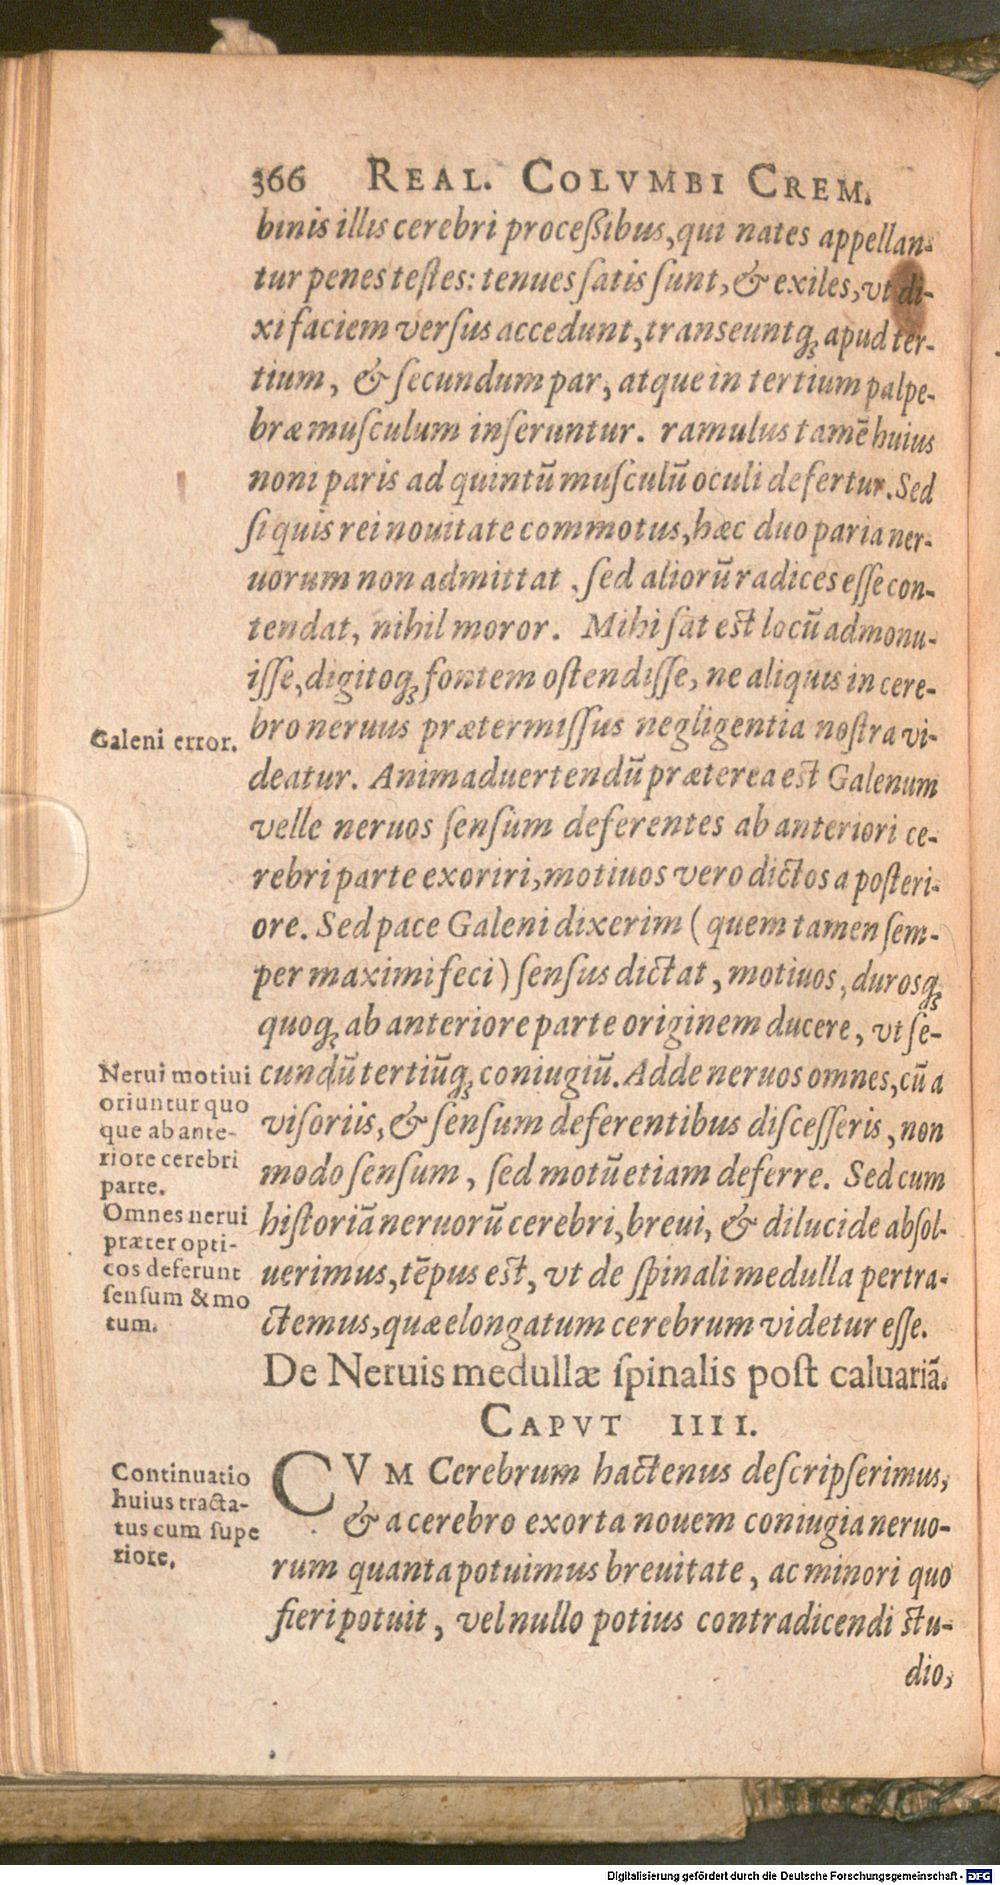 366 REAL. COLVMBI CREM.
binis illis cerebri proceßibus, qui nates appellan-
tur penes testes: tenues satis sunt, & exiles, vt di-
xi faciem versus accedunt, transeuntq; apud ter-
tium, & secundum par, atque in tertium palpe-
bræ musculum inseruntur. ramulus tamē huius
noni paris ad quintū musculū oculi defertur. Sed
si quis rei nouitate commotus, hæc duo paria ner-
uorum non admittat, sed aliorū radices esse con-
tendat, nihil moror. Mihi sat est locū admonu-
isse, digitoq; fontem ostendisse, ne aliquis in cere-
Galeni error.
bro neruus prætermissus negligentia nostra vi-
deatur. Animaduertendū præterea est Galenum
velle neruos sensum deferentes ab anteriori ce-
rebri parte exoriri, motiuos vero dictos a posteri-
ore. Sed pace Galeni dixerim (quem tamen sem-
per maximi feci) sensus dictat, motiuos, durosq;
quoq; ab anteriore parte originem ducere, vt se-
Nerui motiui
oriuntur quo
que ab ante-
riore cerebri
parte.
cundū tertiūq; coniugiū. Adde neruos omnes, cū a
visoriis, & sensum deferentibus discesseris, non
modo sensum, sed motū etiam deferre. Sed cum
Omnes nerui
præter opti-
cos deferunt
sensum & mo
tum.
historiā neruorū cerebri, breui, & dilucide absol-
uerimus, tēpus est, vt de spinali medulla pertra-
ctemus, quæ elongatum cerebrum videtur esse.
De Neruis medullæ spinalis post caluariā.
CAPVT IIII.
Continuatio
huius tracta-
tus cum supe
riore.
CVM Cerebrum hactenus descripserimus,
& a cerebro exorta nouem coniugia neruo-
rum quanta potuimus breuitate, ac minori quo
fieri potuit, vel nullo potius contradicendi stu-
dio,
Digitalisierung gefördert durch die Deutsche Forschungsgemeinschaft - DFG